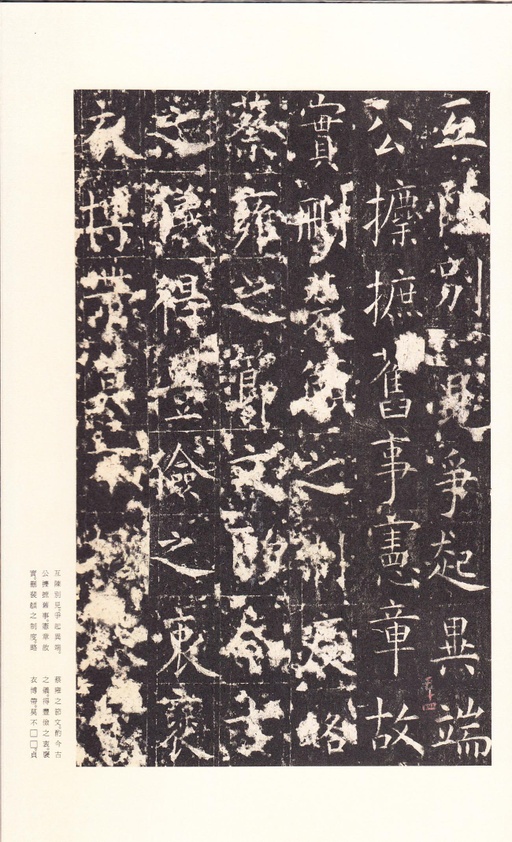 互陳別見爭起異端
公攈摭舊事憲章故
實刪裴頠之制度略
蔡雍之節文酌今古
之儀得豐儉之衷襃
衣博帶莫不
互陳別見。爭起異端。
公攈摭舊事。憲章故
實。刪裴頠之制度。略
蔡雍之節文。酌今古
之儀。得豐儉之衷。襃
衣博帶。莫不□□。貞